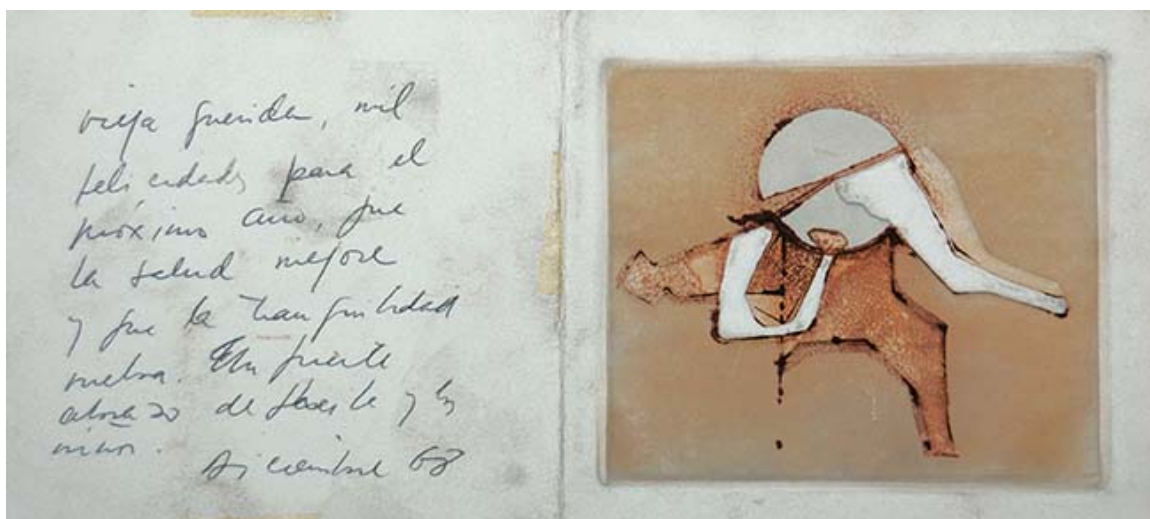 vieja querida, mil
felicidades para el
próximo año, que
la salud mejore
y que la tranquilidad
vuelva. Un fuerte
abrazo de y los
niños.
diciembre 68